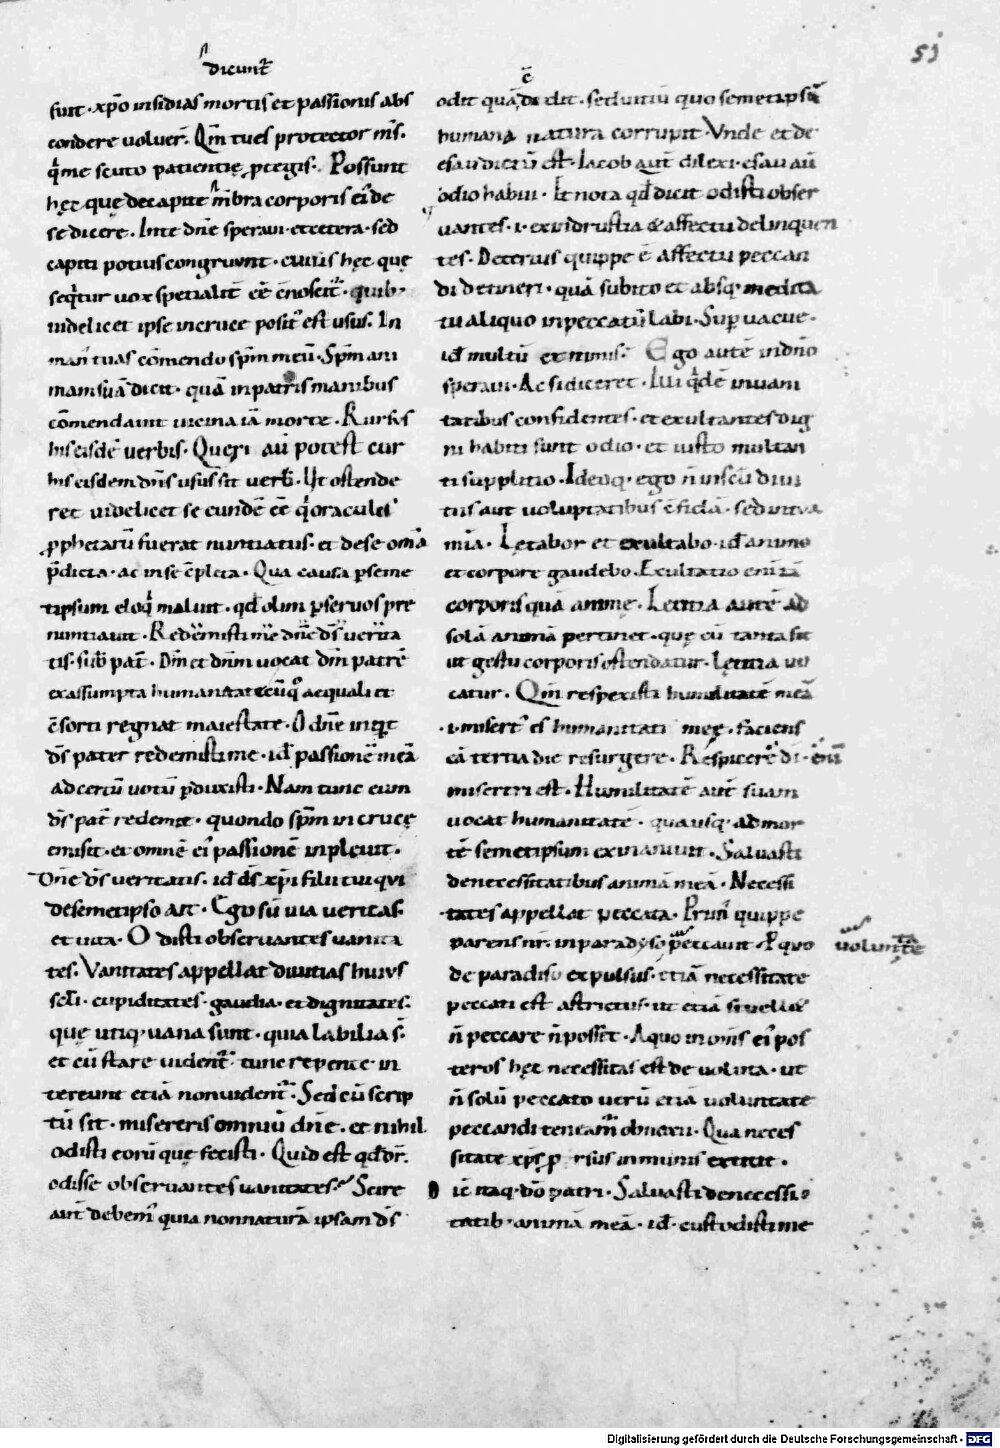 dicunt̄
51
fuit · xp̄o insidias mortis et passionis abs
condere voluer̄. Qm̄ tu es protector m̄s.
q̄ me scuto patientię ꝓtegis. Possunt
hęc quę de capite m̄bra corporis ei de
se dicere. In te dn̄e speravi · et cetera · sed
capiti potius congruunt · cuius hęc quę
seqt̄ur vox spetialit̄ ēē
videlicet ipse in cruce posit᾽ est usus. In
man᾽ tuas cōmendo sp̄m meū · Sp̄m ani
mam suā dicit · quā in patris manibus
cōmendavit vicina iā morte. Rursus
his eisdē verbis. Queri aū potest cur
his eisdem dn̄s usus sit verb᾽. Ut ostende
ret videlicet se eundē ēē q̄ oraculis
ꝓphetarū fuerat nuntiatus · et de se om̄ia
p̄dicta · ac in se c̄pleta. Qua causa p̄ seme
tipsum eloqi maluit · qd̄ olim p̄ servos pre
nuntiavit. Redemisti me dn̄e ds̄ verita
tis. subͥ pat̄. Dm̄ et dn̄m vocat dm̄ patrē
ex assumpta humanitate cū quo aequali et
c̄sorti regnat maiestate. O dn̄e inquit
ds̄ pater redemisti me · id ÷ passionē meā
ad certū votū p̄duxisti. Nam tunc eum
ds̄ pat̄ redemit · quondo sp̄m in crucę
emisit · et omnē ei᾽ passionē inplevit.
Dn̄e ds̄ veritatis. id ÷ ds̄ xp̄i filii tui qui
de semetipso ait. Ego sū via veritas
et vita. Odisti observantes vanita
tes. Vanitates appellat divitias huius
scl̄i · cupiditates · gaudia · et dignitates.
quę utiq; vana sunt · quia labilia s̄.
et cū stare vident᾽ · tunc repente in
tereunt etiā non vident᾽. Sed cū scrip
tū sit · misereris omniū dn̄e · et nihil
odisti eorū quę fecisti. Quid est qd̄ dr̄.
odisse observantes vanitates? Scire
aut̄ debem᾽ quia non naturā ipsam ds̄
odit quā c̄didit · sed vitiū quo semetipsā
humana natura corrupit. Unde et de
esau dictū est. Iacob aut̄ dilexi · esau aū
odio habui. Et nota qd̄ dicit odisti obser
vantes · i · ex industria & affectu delinquen
tes. Deterius quippe ē affectu peccan
di detineri · quā subito et absq; medita
tu aliquo in peccatū labi. Supvacue.
id ÷ multū et nimis. Ego autē in dn̄o
speravi. Ac si diceret. Illi q̄dē in vani
tatibus confidentes · et exultantes dig
ni habiti sunt odio · et iusto multan
ti supplitio. Ideoq; ego n̄ in scl̄i divi
tiis aut voluptatibus c̄fidā · sed in tua
mīa. Lętabor et exultabo · id ÷ animo
et corpore gaudebo. Exultatio enī tā
corporis quā animę. Letitia autē ad
solā animā pertinet · quę cū tanta sit
ut gestu corporis ostendatur · lętitia vo
catur. Qm̄ respexisti humilitatē meā
· i · misert᾽ es humanitati męę · faciens
eā tertia die resurgere. Respicere di · enī
misereri est. Humilitatē autē suam
vocat humanitatē · qua usq; ad mor
tē semetipsum exinanivit. Salvasti
de necessitatibus animā meā. Necessi
tates appellat peccata. Prim᾽ quippe
parens nr̄ in paradyso peccavit
voluntate
de paradiso expulsus · etiā necessitate
peccati est astrictus · ut etiā si vellet
n̄ peccare n̄ posset. A quo in om̄s ei᾽ pos
teros hęc necessitas est devoluta · ut
n̄ solū peccato verū etiā voluntate
peccandi teneam᾽ obnoxii. Qua neces
sitate xp̄s ꝓrsus inmunis extitit.
ic̄ itaq; dō patri. Salvasti de necessi
tatib᾽ animā meā · id ÷ custodisti me
Digitalisierung gefördert durch die Deutsche Forschungsgemeinschaft - DFG